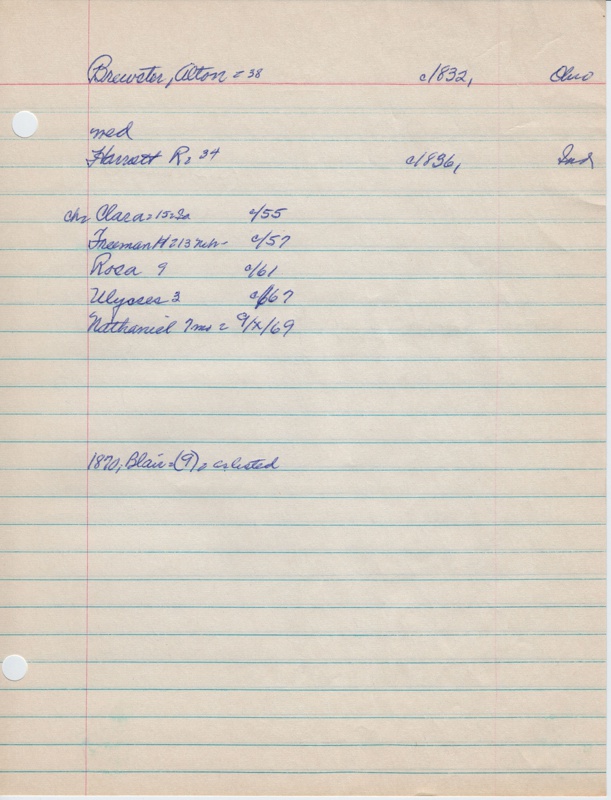 Brewster, Alton = 38 c/1832, Ohio
med
Harriett R = 34 c/1836, Ind
ch = Clara = 15 = Ia c/55
Freeman H = 13 Neb - c/57
Rosa 9 c/61
Ulysses 3 c/67
Nathaniel 7ms = 9/x/69
1870, Blair = (9) = as listed